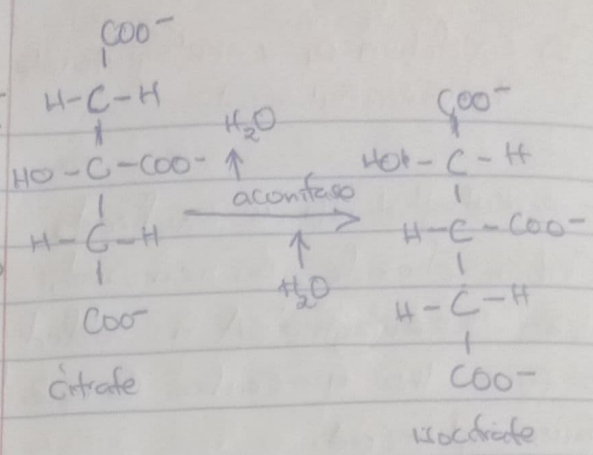 COO-
H-C-H
HO-C-COO-
H-C-H
COO-
citrate
H2O
aconitase
H2O
COO-
HO-C-H
H-C-COO-
H-C-H
COO-
isocitrate